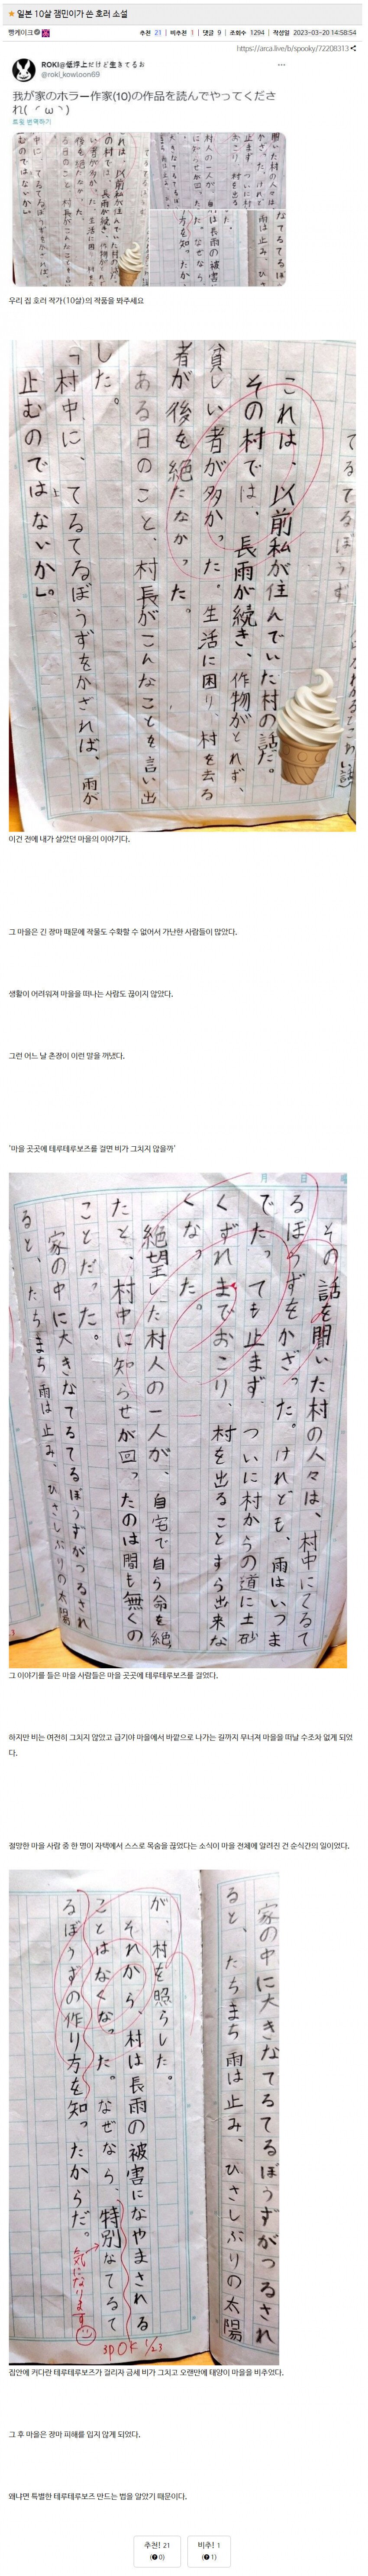 ★ 일본 10살 잼민이가 쓴 호러 소설
빵케이크
추천 21 | 비추천 1 | 댓글 9 | 조회수 1294 | 작성일 2023-03-20 14:58:54
https://arca.live/b/spooky/72208313
ROKI@低浮上だけど生きてるお
@roki_kowloon69
我が家のホラー作家(10)の作品を読んでやってくださ
れ( ´ω`)
트윗 번역하기
우리 집 호러 작가(10살)의 작품을 봐주세요
これは、以前私が住んでいた村の話だ。
その村では、長雨が続き、作物がとれず、
貧しい者が多かった。生活に困り、村を去る
者が後を絶たなかった。
ある日のこと、村長がこんなことを言い出
した。
「村中に、てるてるぼうずをかざれば、雨が
止むのではないか」。
이건 전에 내가 살았던 마을의 이야기다.
그 마을은 긴 장마 때문에 작물도 수확할 수 없어서 가난한 사람들이 많았다.
생활이 어려워져 마을을 떠나는 사람도 끊이지 않았다.
그런 어느 날 촌장이 이런 말을 꺼냈다.
'마을 곳곳에 테루테루보즈를 걸면 비가 그치지 않을까'
月 日
その話を聞いた村の人々は、村中にてるて
るぼうずをかざった。けれども、雨はいつま
でたっても止まず、ついに村からの道に土砂
くずれまでおこり、村を出ることすら出来な
くなった。
絶望した村人の一人が、自宅で自ら命を絶
たと、村中に知らせが回ったのは間も無くの
ことだった。
家の中に大きなてるてるぼうずがつるされ
ると、たちまち雨は止み、ひさしぶりの太陽
그 이야기를 들은 마을 사람들은 마을 곳곳에 테루테루보즈를 걸었다.
하지만 비는 여전히 그치지 않았고 급기야 마을에서 바깥으로 나가는 길까지 무너져 마을을 떠날 수조차 없게 되었
다.
절망한 마을 사람 중 한 명이 자택에서 스스로 목숨을 끊었다는 소식이 마을 전체에 알려진 건 순식간의 일이었다.
家の中に大きなてるてるぼうずがつるされ
ると、たちまち雨は止み、ひさしぶりの太陽
が、村を照らした。
それから、村は長雨の被害になやまされる
ことはなくなった。なぜなら、特別なてるて
るぼうずの作り方を知ったからだ。
気になります
3P OK 1/23
집안에 커다란 테루테루보즈가 걸리자 금세 비가 그치고 오랜만에 태양이 마을을 비추었다.
그 후 마을은 장마 피해를 입지 않게 되었다.
왜냐면 특별한 테루테루보즈 만드는 법을 알았기 때문이다.
추천! 21
( 0)
비추! 1
( 1)